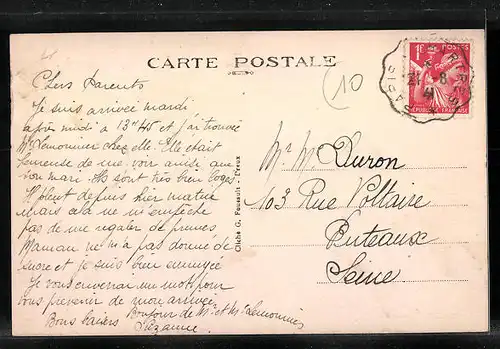 CARTE POSTALE
10
1F POSTES
RÉPUBLIQUE FRANÇAISE
PARIS
21 - 8
41
Chers Parents
Je suis arrivée mardi
après midi à 13h45 et j'ai trouvée
Me Lemonnier chez elle. Elle était
heureuse de me voir ainsi que
son mari. Ils sont très bien logés.
Il pleut depuis hier matin
mais cela ne m'empêche
pas de me régaler de prunes
Maman ne m'a pas donné de
sucre et je suis bien ennuyée
Je vous enverrai un mot pour
vous prévenir de mon arrivée.
Bonjour de Mr et Me Lemonnier
Bons baisers
Suzanne
Cliché G. Foucault - Evreux
Mr Me Duron
103 Rue Voltaire
Puteaux
Seine